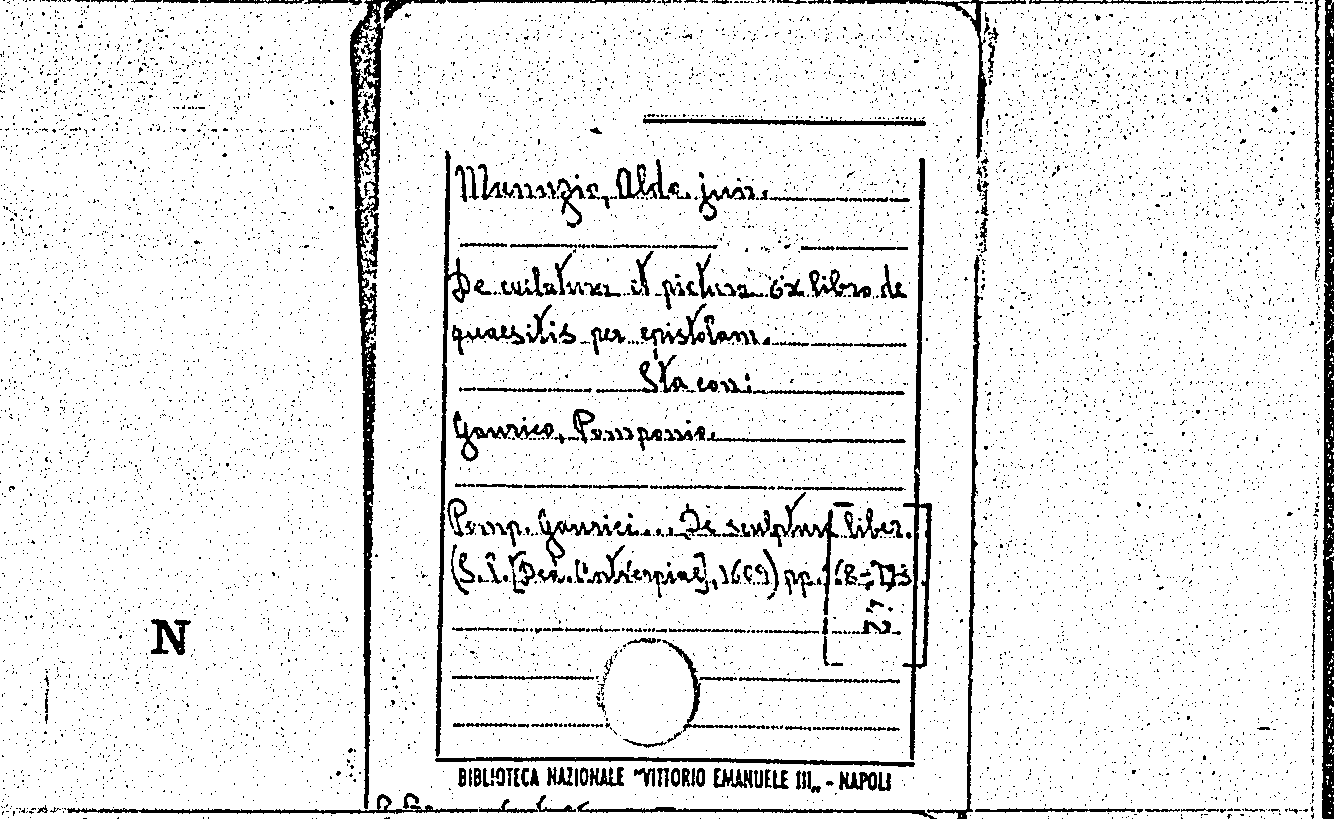 Manuzio, Aldo. jun.
De caelatura et pictura ex libro de
quaesitis per epistolam.
Sta con:
Gaurico, Pomponio.
Pomp. Gaurici... De sculptura liber.
(S. l. [Sed. Antverpiae], 1609) pp. 168-173.
N
BIBLIOTECA NAZIONALE "VITTORIO EMANUELE III„ - NAPOLI